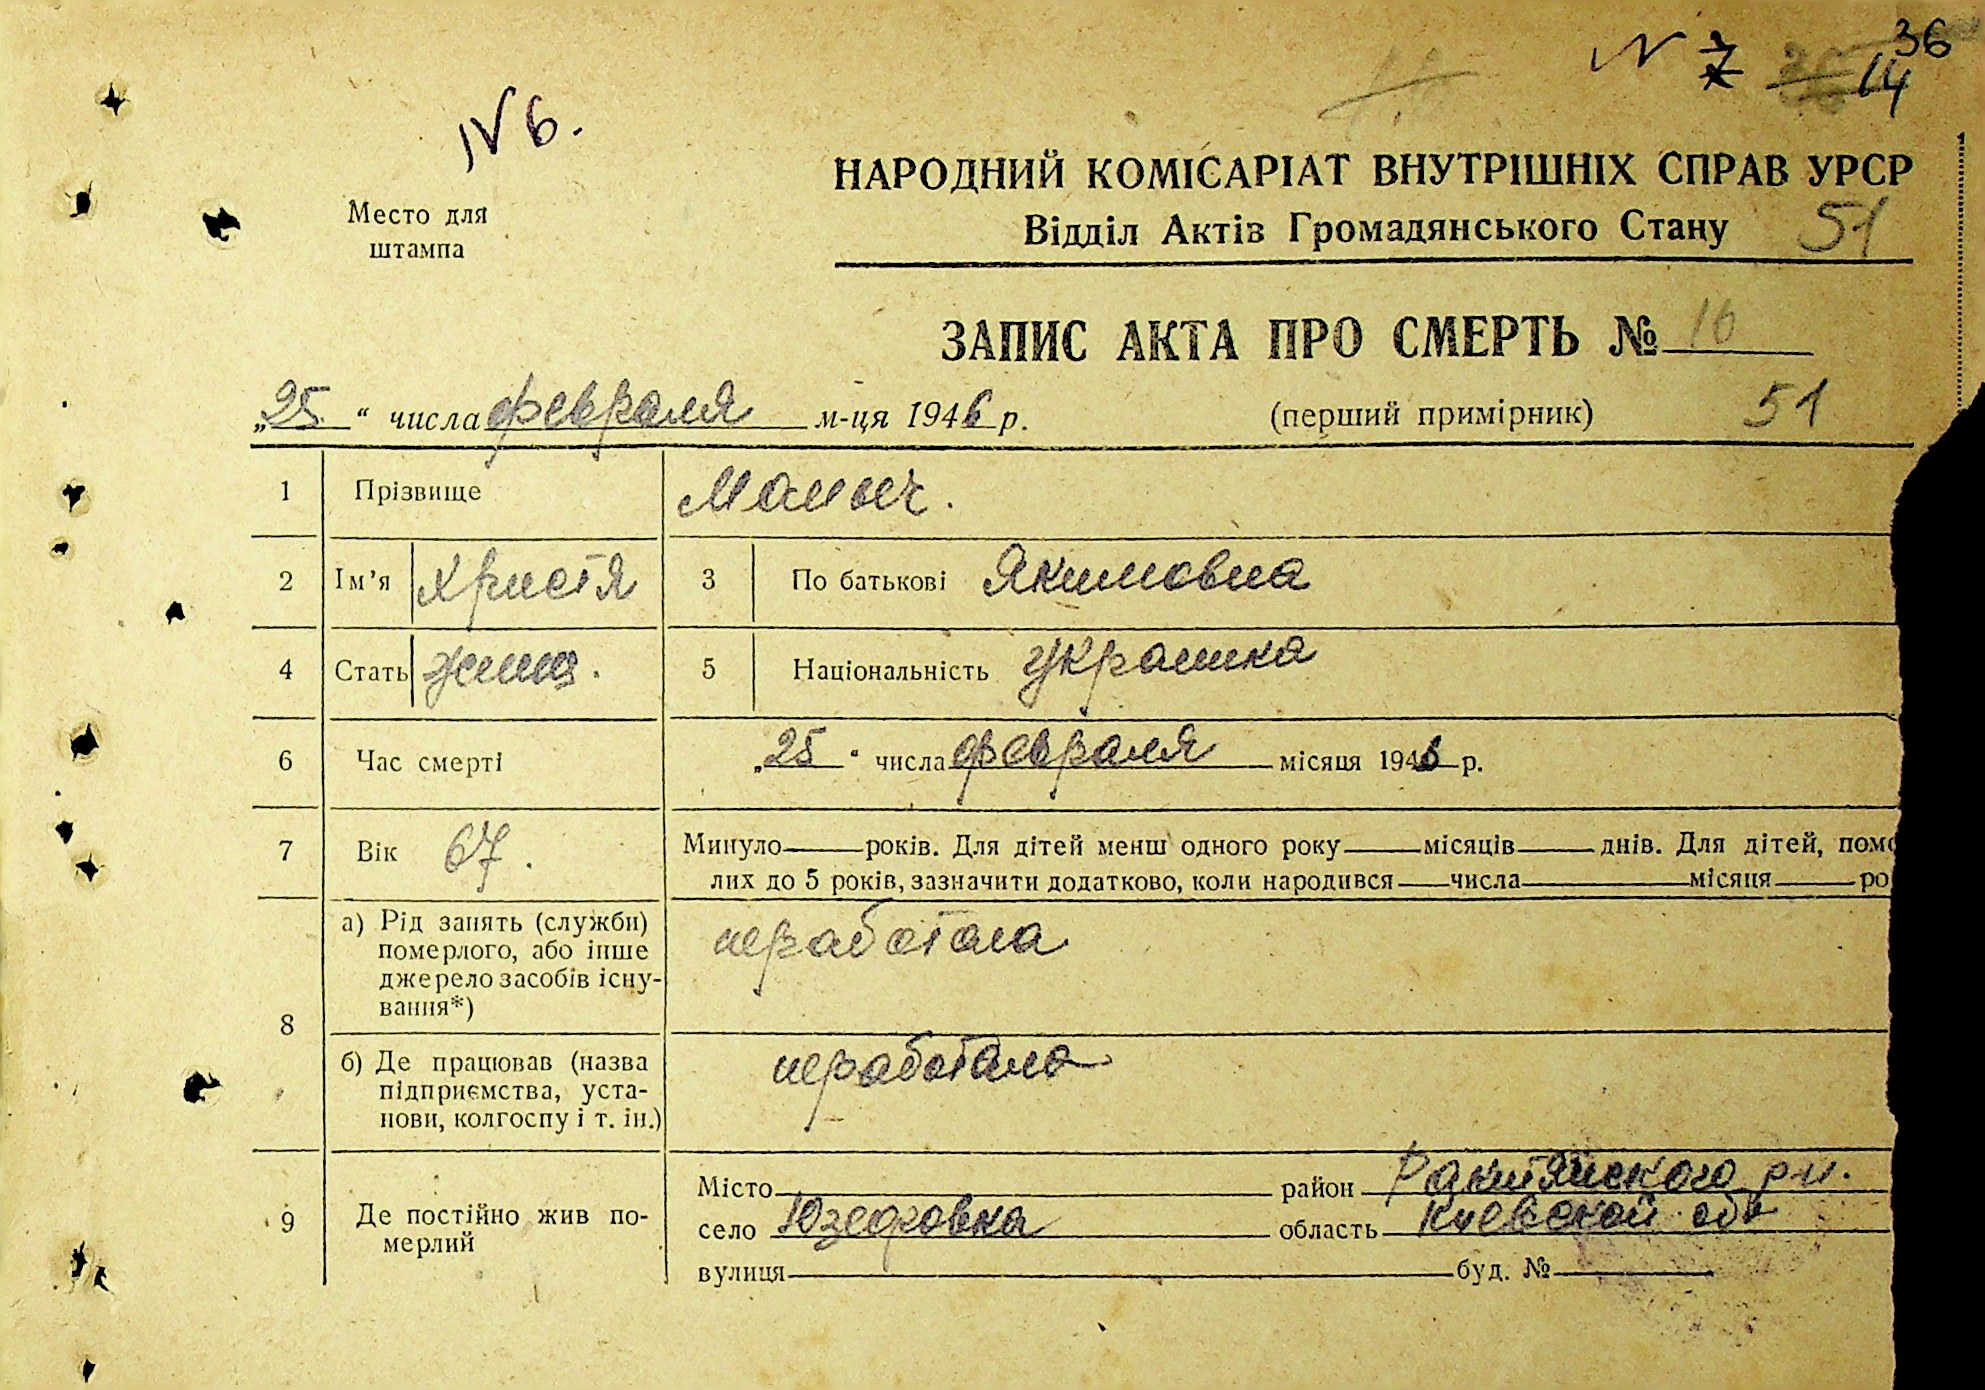 N 7 36
14
N 6.
Место для
штампа
НАРОДНИЙ КОМІСАРІАТ ВНУТРІШНІХ СПРАВ УРСР
Відділ Актів Громадянського Стану 51
ЗАПИС АКТА ПРО СМЕРТЬ № 16
„25“ числа февраля м-ця 1946 р. (перший примірник) 51
1 Прізвище Маныч.
2 Ім’я Христя 3 По батькові Якимовна
4 Стать 5 Національність украинка
6 Час смерті „25“ числа февраля місяця 1946 р.
7 Вік 67. Минуло років. Для дітей менш одного року місяців днів. Для дітей, помо
лих до 5 років, зазначити додатково, коли народився числа місяця ро
8 а) Рід занять (служби)
померлого, або інше
джерело засобів існу-
вання*) неработала
б) Де працював (назва
підприємства, уста-
нови, колгоспу і т. ін.) неработала
9 Де постійно жив по-
мерлий
Місто район Ракитянского р-н.
село Юзефовка область Киевской обл
вулиця буд. №